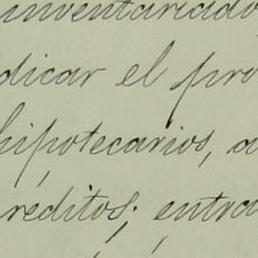 inventariado
dicar el pro
hipotecarios, a
réditos; entra